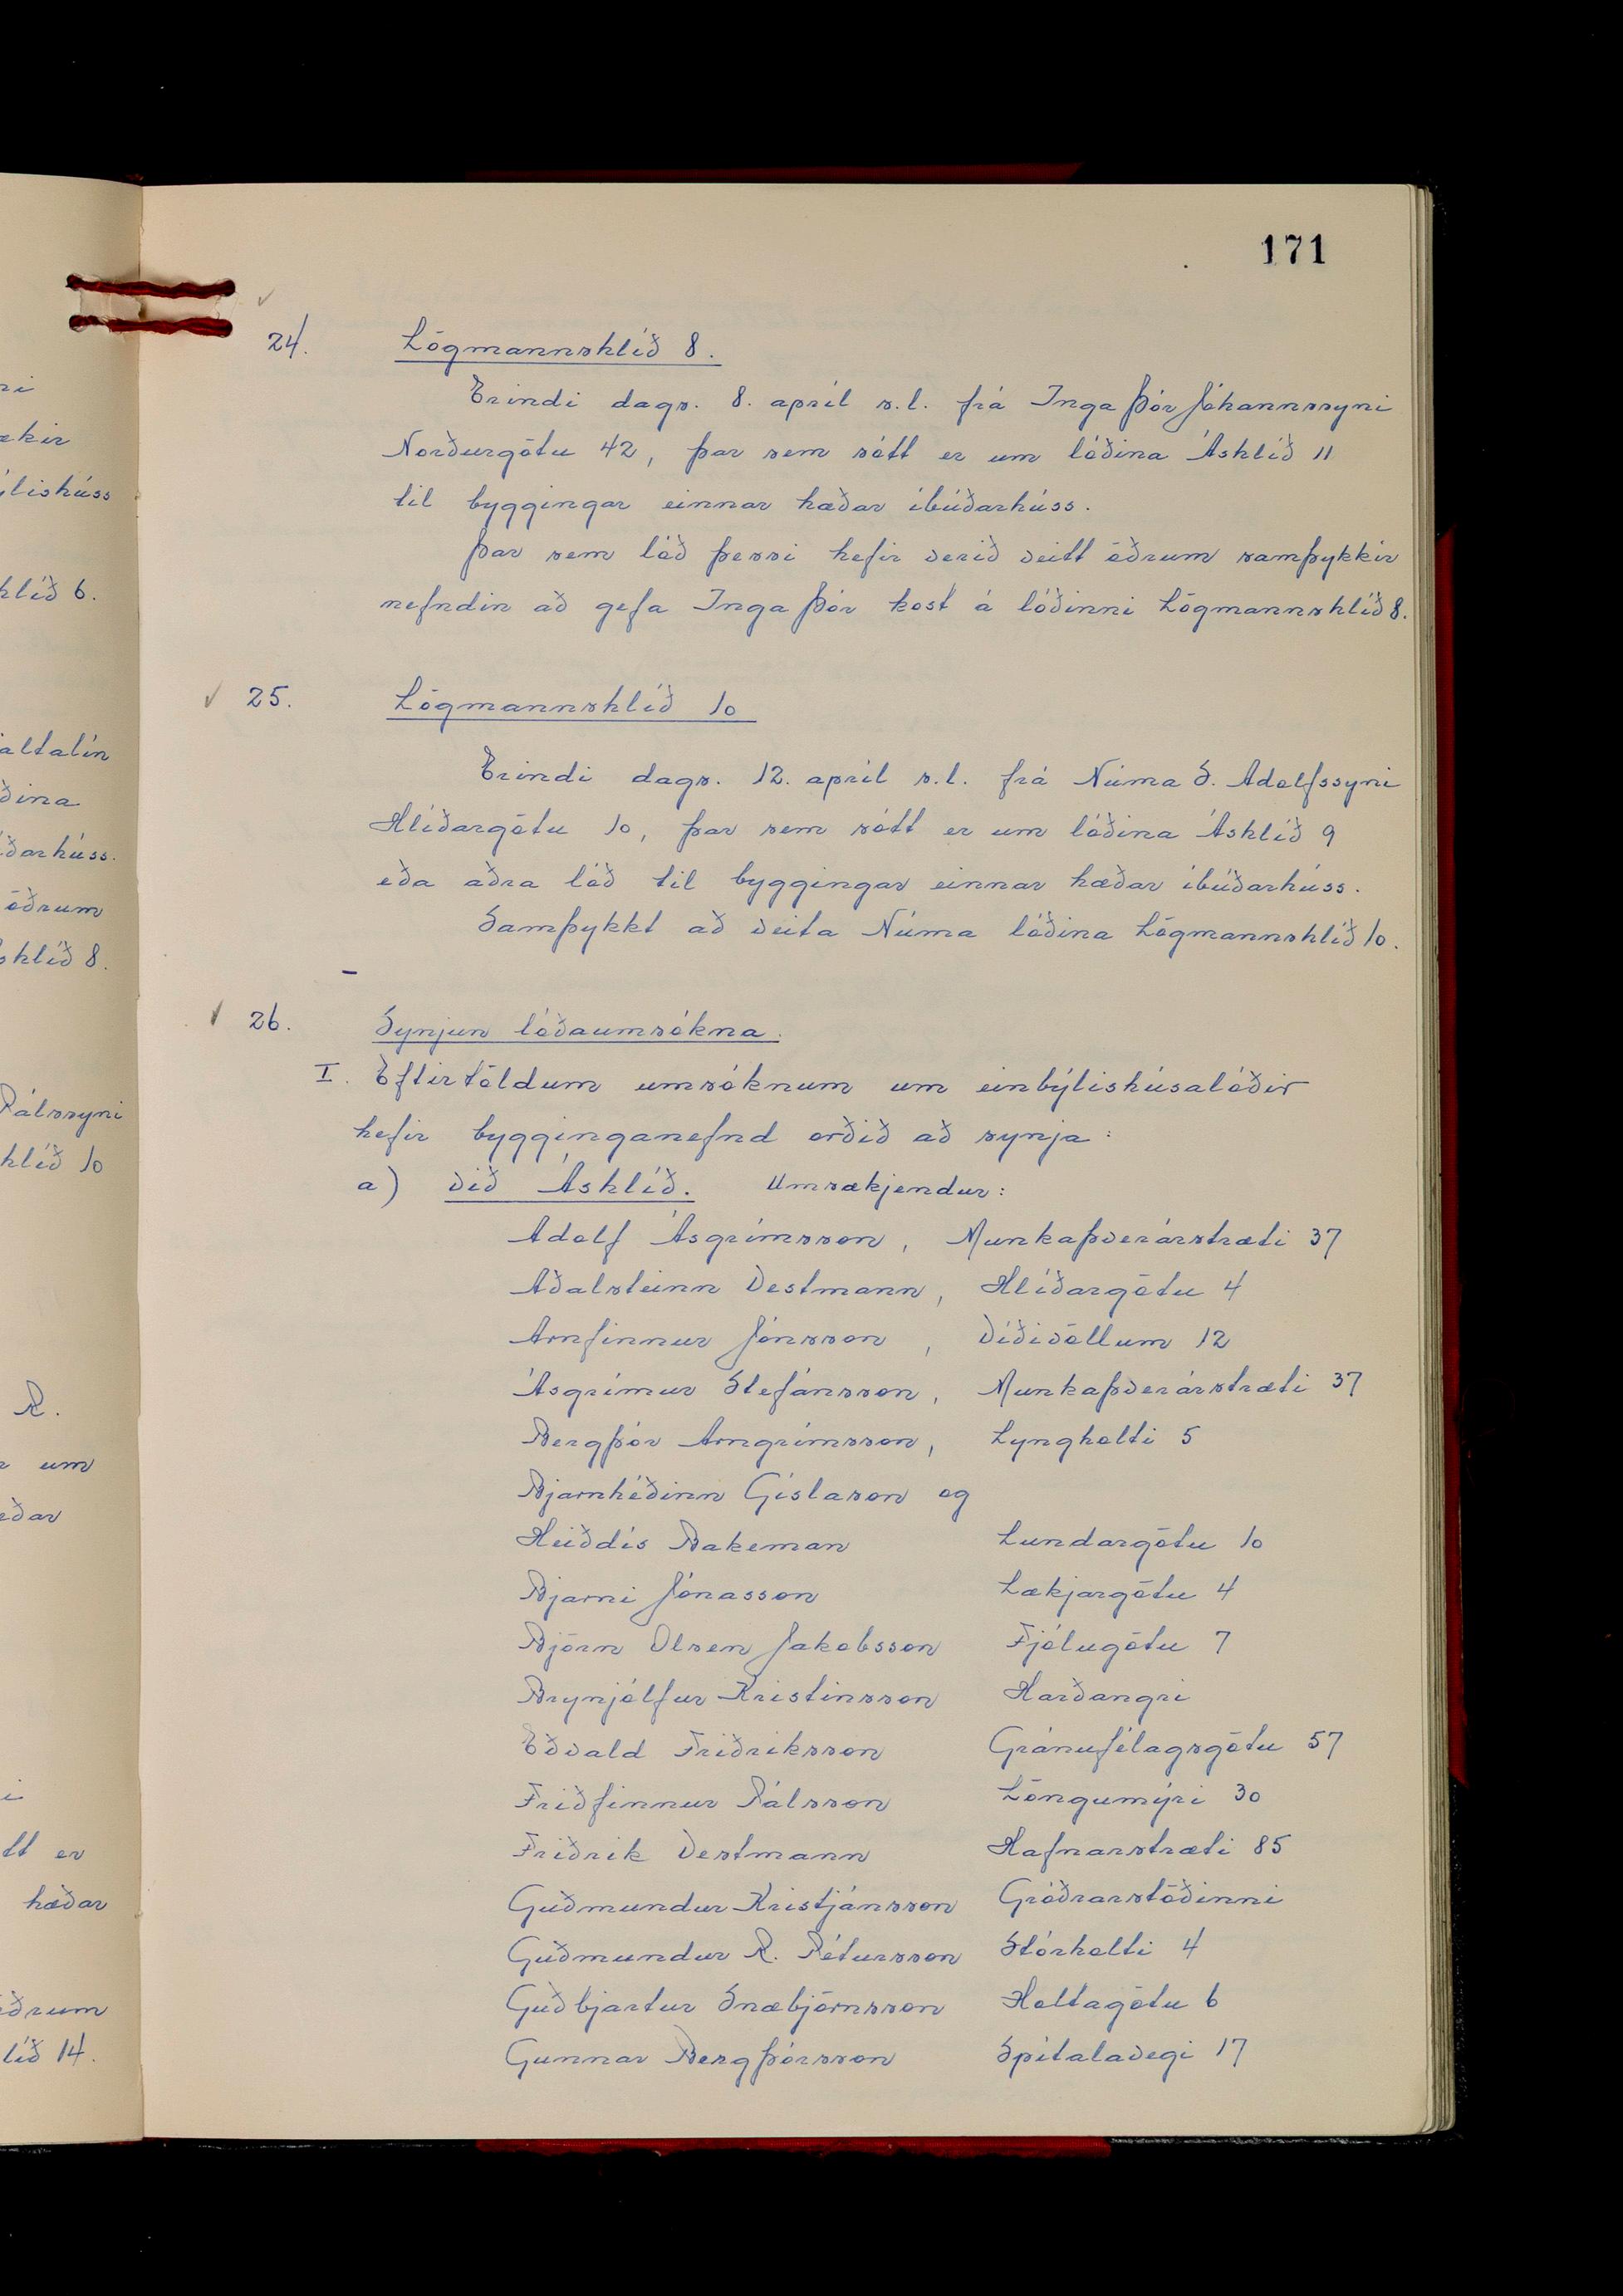 171
24. Lögmannshlíð 8.
Erindi dags. 8. apríl s.l. frá Inga Þór Jóhannssyni
Norðurgötu 42, þar sem sótt er um lóðina Áshlíð 11
til byggingar einnar hæðar íbúðarhúss.
Þar sem lóð þessi hefir verið veitt öðrum samþykkir
nefndin að gefa Inga Þór kost á lóðinni Lögmannshlíð 8.
25. Lögmannshlíð 10
Erindi dags. 12. apríl s.l. frá Núma S. Adolfssyni
Hlíðargötu 10, þar sem sótt er um lóðina Áshlíð 9
eða aðra lóð til byggingar einnar hæðar íbúðarhúss.
Samþykkt að veita Núma lóðina Lögmannshlíð 10.
26. Synjun lóðaumsókna.
I. Eftirtöldum umsóknum um einbýlishúsalóðir
hefir bygginganefnd orðið að synja:
a) við Áshlíð. Umsækjendur:
Adolf Ásgrímsson, Munkaþverárstræti 37
Aðalsteinn Vestmann, Hlíðargötu 4
Arnfinnur Jónsson, Víðivöllum 12
Ásgrímur Stefánsson, Munkaþverárstræti 37
Bergþór Arngrímsson, Lyngholti 5
Bjarnhéðinn Gíslason og
Heiðdís Bakeman Lundargötu 10
Bjarni Jónasson Lækjargötu 4
Björn Olsen Jakobsson Fjólugötu 7
Brynjólfur Kristinsson Harðangri
Eðvald Friðriksson Gránufélagsgötu 57
Friðfinnur Pálsson Löngumýri 30
Friðrik Vestmann Hafnarstræti 85
Guðmundur Kristjánsson Gróðrarstöðinni
Guðmundur R. Pétursson Stórholti 4
Guðbjartur Snæbjörnsson Holtagötu 6
Gunnar Bergþórsson Spítalavegi 17
ækir
ýlishúss
hlíð 6.
altalín
ðina
úðarhúss.
öðrum
shlíð 8.
Pálssyni
hlíð 10
R.
um
hæðar
tt er
hæðar
öðrum
líð 14.